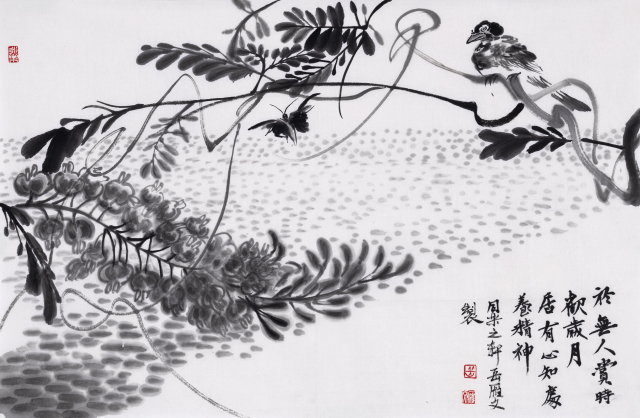 於無人賞時
歲月
居有心知處
養精神
同樂之軒 岳雁文
製